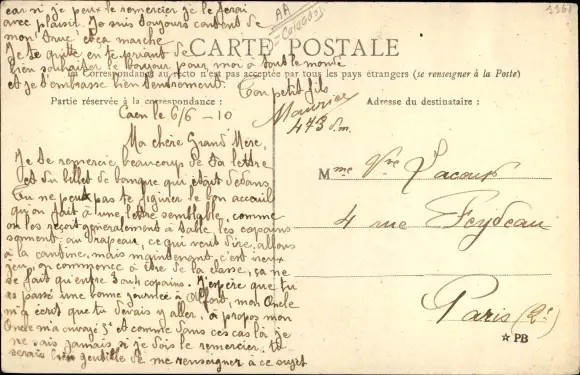 car si je peux le remercier je le ferai
avec plaisir. Je suis toujours content de
mon truc, et ça marche
Je te quitte en te priant de
bien souhaiter le bonjour pour moi à tout le monde
et je t'embrasse bien tendrement. Ton petit fils
Maurice
473 d.m.
AA
Calvados
CARTE POSTALE
La Correspondance au recto n'est pas acceptée par tous les pays étrangers (se renseigner à la Poste)
Partie réservée à la correspondance :
Adresse du destinataire :
Caen le 6/6 - 10
Ma chère Grand'Mère,
Je te remercie beaucoup de ta lettre
et du billet de banque qui était dedans
Tu ne peux pas te figurer le bon accueil
qu'on fait à une lettre semblable, comme
on les reçoit généralement à table, les copains
sonnent: au Drapeau, ce qui veut dire, allons
à la cantine, mais maintenant, c'est vieux
jeu, je commence à être de la classe, ça ne
se fait qu'entre copains. J'espère que tu
as passé une bonne journée à Alfort, mon Oncle
m'a écrit que tu devais y aller, à propos mon
Oncle m'a envoyé 5f et comme dans ces cas là je
ne sais jamais si je dois le remercier, tu
serais bien gentille de me renseigner à ce sujet
Mme Vve Lacoux
4 rue Feydeau
Paris (2e)
PB